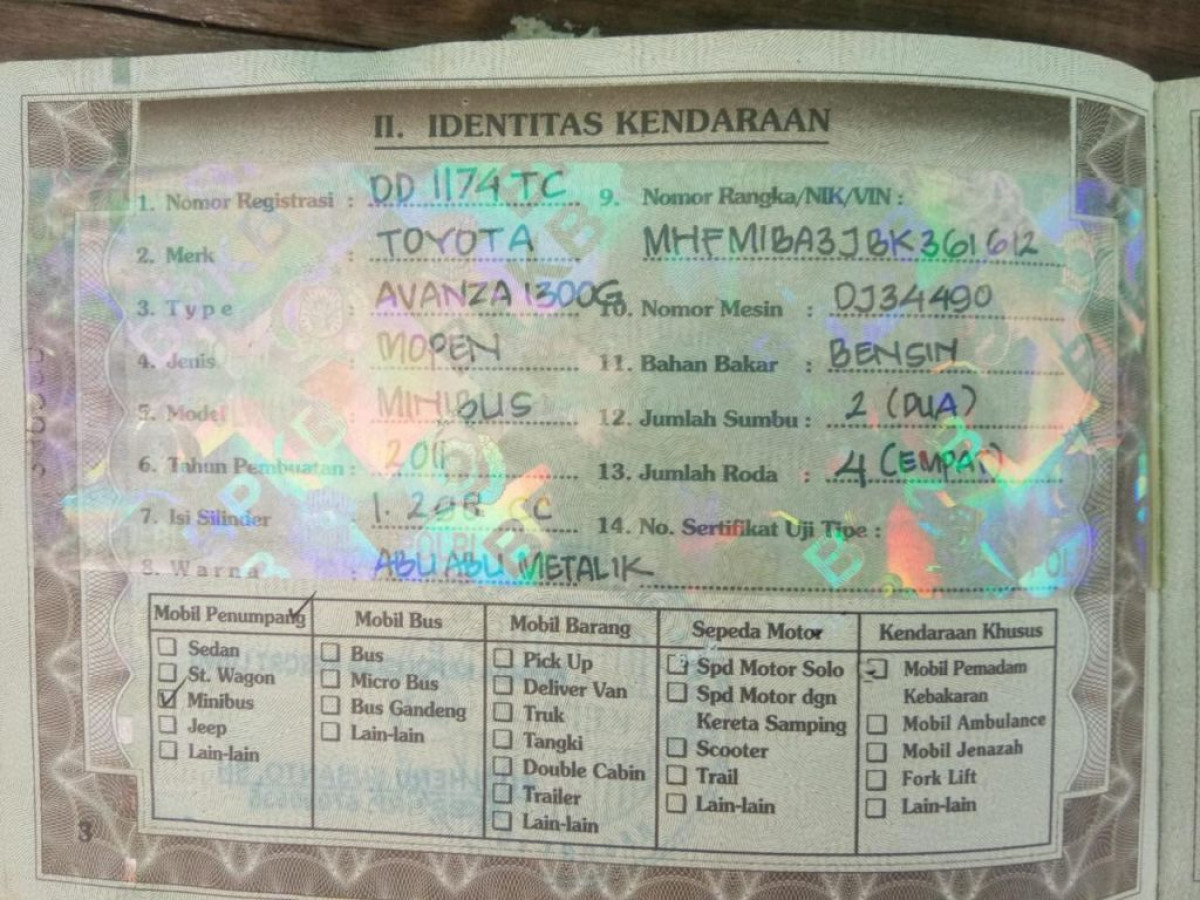 II. IDENTITAS KENDARAAN
1. Nomor Registrasi : DD 1174 TC
2. Merk : TOYOTA
3. Type : AVANZA 1300G
4. Jenis : MOPEN
5. Model : MINIBUS
6. Tahun Pembuatan : 2011
7. Isi Silinder : 1.298 CC
8. Warna : ABU ABU METALIK
9. Nomor Rangka/NIK/VIN :
MHFM1BA3JBK361612
10. Nomor Mesin : DJ34490
11. Bahan Bakar : BENSIN
12. Jumlah Sumbu : 2 (DUA)
13. Jumlah Roda : 4 (EMPAT)
14. No. Sertifikat Uji Tipe :
Mobil Penumpang
Sedan
St. Wagon
Minibus
Jeep
Lain-lain
Mobil Bus
Bus
Micro Bus
Bus Gandeng
Lain-lain
Mobil Barang
Pick Up
Deliver Van
Truk
Tangki
Double Cabin
Trailer
Lain-lain
Sepeda Motor
Spd Motor Solo
Spd Motor dgn
Kereta Samping
Scooter
Trail
Lain-lain
Kendaraan Khusus
Mobil Pemadam
Kebakaran
Mobil Ambulance
Mobil Jenazah
Fork Lift
Lain-lain
3